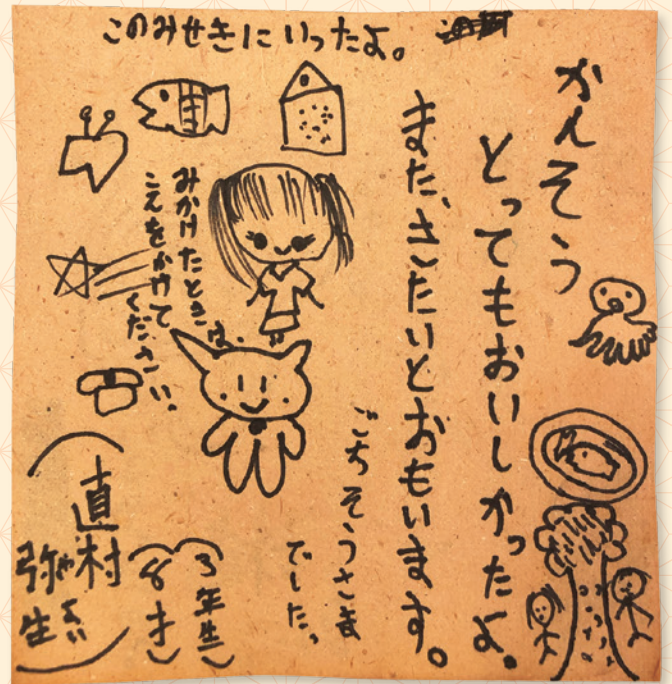 このみせきにいったよ。
かんそう
とってもおいしかったよ。
また、きたいとおもいます。
ごちそうさま
でした。
みかけたときは、
こえをかけて
ください。
(3年生)
(8才)
直村
弥生